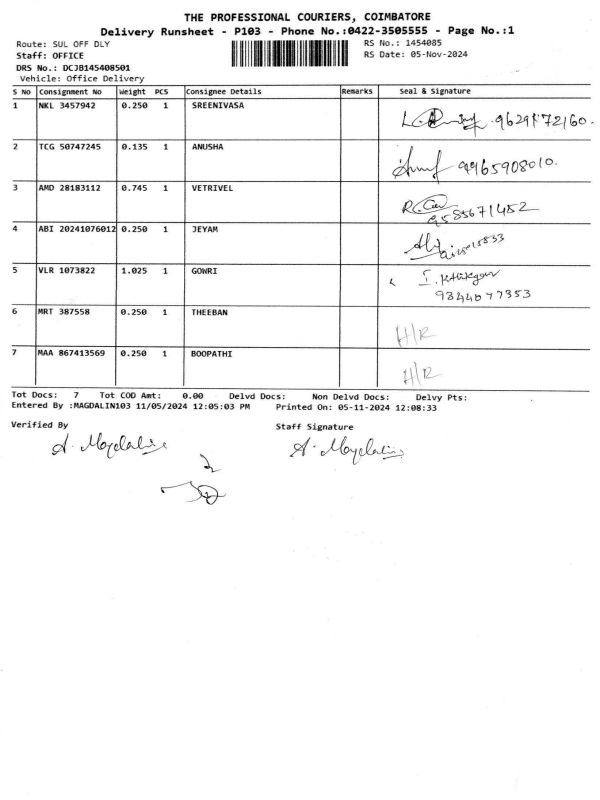 THE PROFESSIONAL COURIERS, COIMBATORE
Delivery Runsheet - P103 - Phone No.:0422-3505555 - Page No.:1
Route: SUL OFF DLY
RS No.: 1454085
Staff: OFFICE
RS Date: 05-Nov-2024
DRS No.: DCJB145408501
Vehicle: Office Delivery
S No Consignment No Weight PCS Consignee Details Remarks Seal & Signature
1 NKL 3457942 0.250 1 SREENIVASA
2 TCG 50747245 0.135 1 ANUSHA 9965908010.
3 AMD 28183112 0.745 1 VETRIVEL
9585671452
4 ABI 20241076012 0.250 1 JEYAM
5 VLR 1073822 1.025 1 GOWRI
9344077353
6 MRT 387558 0.250 1 THEEBAN
H/R
7 MAA 867413569 0.250 1 BOOPATHI
H/R
Tot Docs: 7 Tot COD Amt: 0.00 Delvd Docs: Non Delvd Docs: Delvy Pts:
Entered By :MAGDALIN103 11/05/2024 12:05:03 PM Printed On: 05-11-2024 12:08:33
Verified By Staff Signature
A. Magdaline A. Magdaline